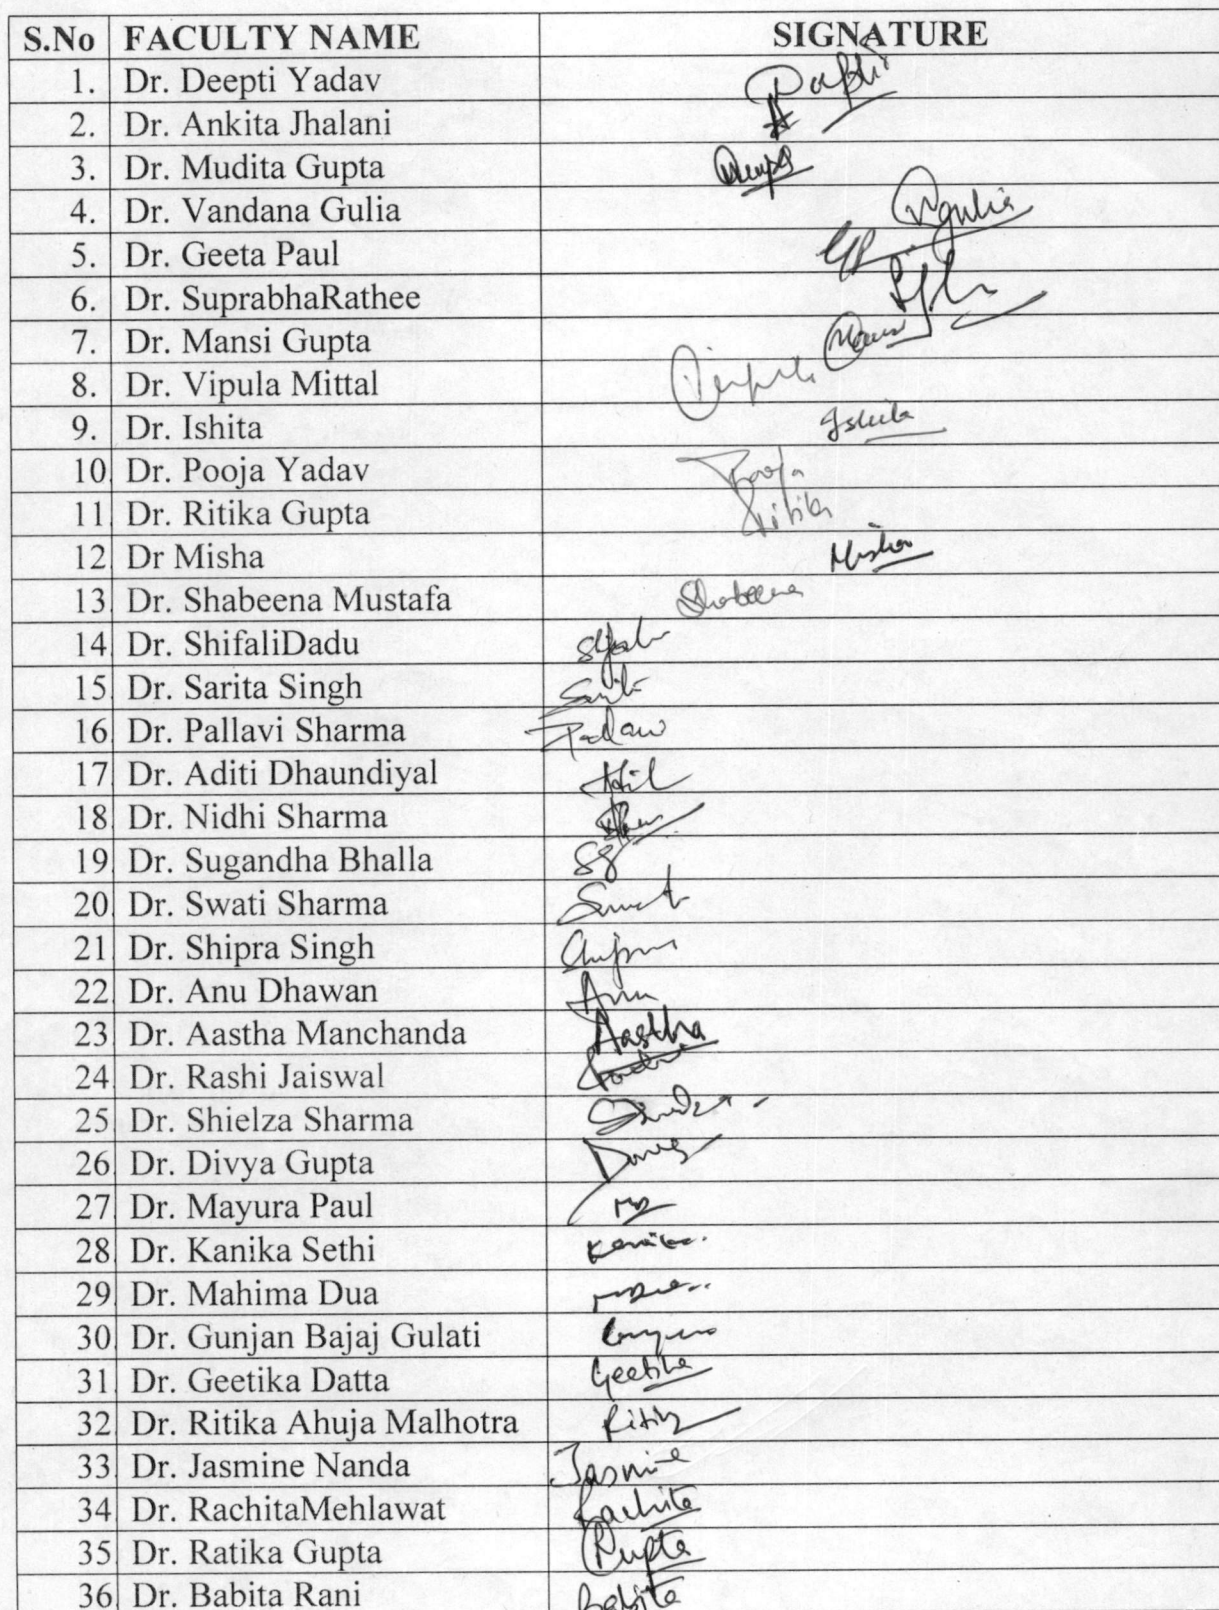 S.No FACULTY NAME SIGNATURE
1. Dr. Deepti Yadav
2. Dr. Ankita Jhalani
3. Dr. Mudita Gupta
4. Dr. Vandana Gulia
5. Dr. Geeta Paul
6. Dr. SuprabhaRathee
7. Dr. Mansi Gupta
8. Dr. Vipula Mittal
9. Dr. Ishita Ishita
10. Dr. Pooja Yadav Pooja
11. Dr. Ritika Gupta Ritika
12. Dr Misha Misha
13. Dr. Shabeena Mustafa Shabeena
14. Dr. ShifaliDadu
15. Dr. Sarita Singh
16. Dr. Pallavi Sharma
17. Dr. Aditi Dhaundiyal
18. Dr. Nidhi Sharma
19. Dr. Sugandha Bhalla
20. Dr. Swati Sharma
21. Dr. Shipra Singh
22. Dr. Anu Dhawan Anu
23. Dr. Aastha Manchanda Aastha
24. Dr. Rashi Jaiswal
25. Dr. Shielza Sharma
26. Dr. Divya Gupta
27. Dr. Mayura Paul
28. Dr. Kanika Sethi
29. Dr. Mahima Dua
30. Dr. Gunjan Bajaj Gulati
31. Dr. Geetika Datta Geetika
32. Dr. Ritika Ahuja Malhotra
33. Dr. Jasmine Nanda Jasmine
34. Dr. RachitaMehlawat Rachita
35. Dr. Ratika Gupta RGupta
36. Dr. Babita Rani Babita